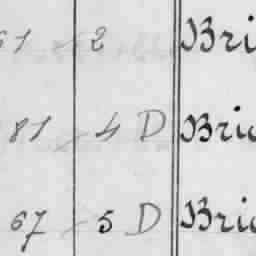 61 2 Bri
81 4 D Bri
67 5 D Bri